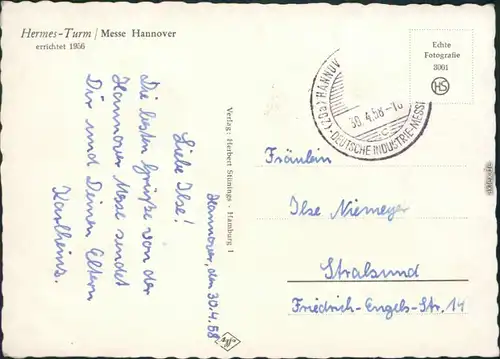 Hermes-Turm / Messe Hannover
errichtet 1956
Hannover, den 30.4.58
Liebe Ilse!
Die besten Grüße von der
Hannover Messe sendet
Dir und Deinen Eltern
Karlheinz.
Verlag: Herbert Stünings - Hamburg 1
(20a) HANNOV
30.4.58-16
c
DEUTSCHE INDUSTRIE-MESS
Echte
Fotografie
3001
HS
Fräulein
Ilse Niemeyer
Stralsund
Friedrich-Engels-Str. 14